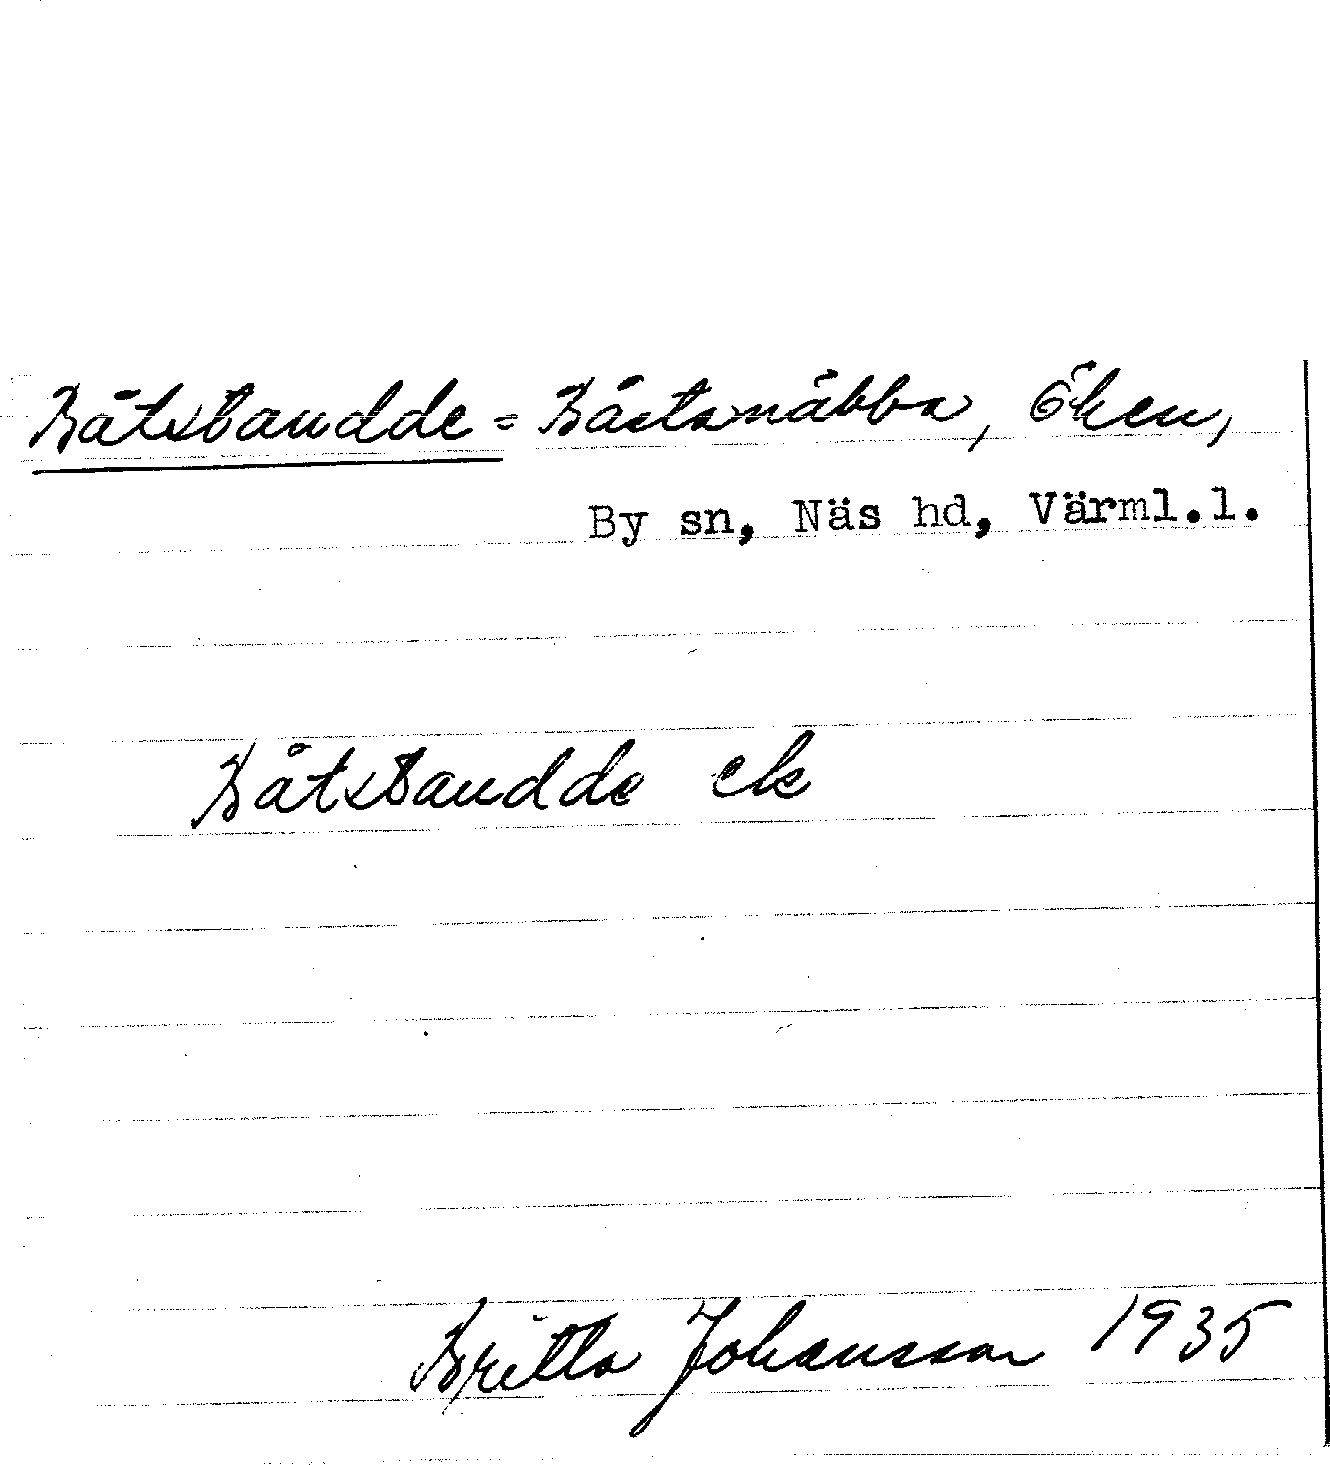 Båtstaudde = Båstanäbba, Öken,
By sn, Näs hd, Värml.l.
Båtstaudde ek
Britta Johansson 1935